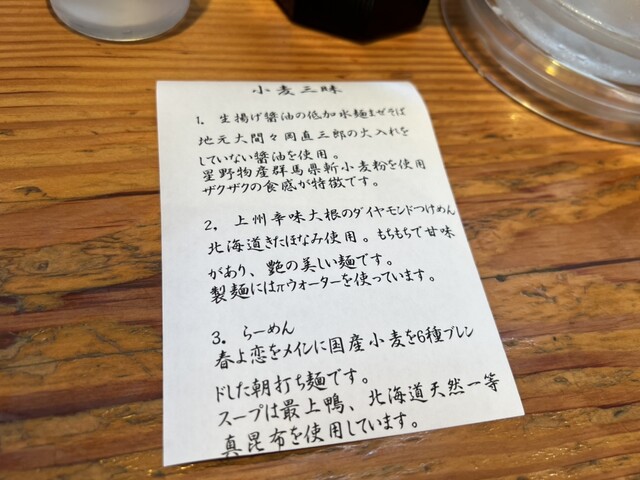 小麦三昧
1. 生揚げ醤油の低加水麺まぜそば
地元大間々岡直三郎の火入れを
していない醤油を使用。
星野物産群馬県新小麦粉を使用
ザクザクの食感が特徴です。
2. 上州辛味大根のダイヤモンドつけめん
北海道きたほなみ使用。もちもちで甘味
があり、艶の美しい麺です。
製麺にはπウォーターを使っています。
3. らーめん
春よ恋をメインに国産小麦を6種ブレン
ドした朝打ち麺です。
スープは最上鴨、北海道天然一等
真昆布を使用しています。